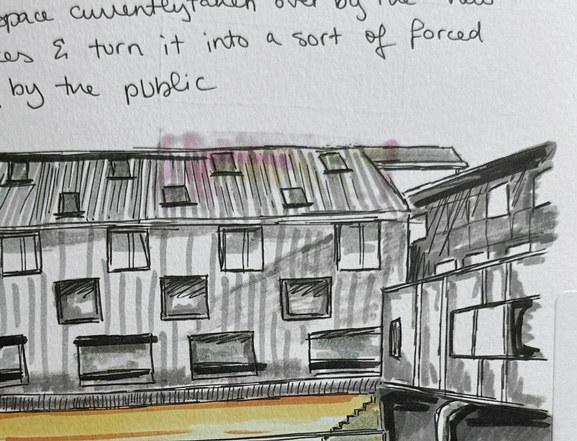 space currently taken over by the
es & turn it into a sort of forced
by the public